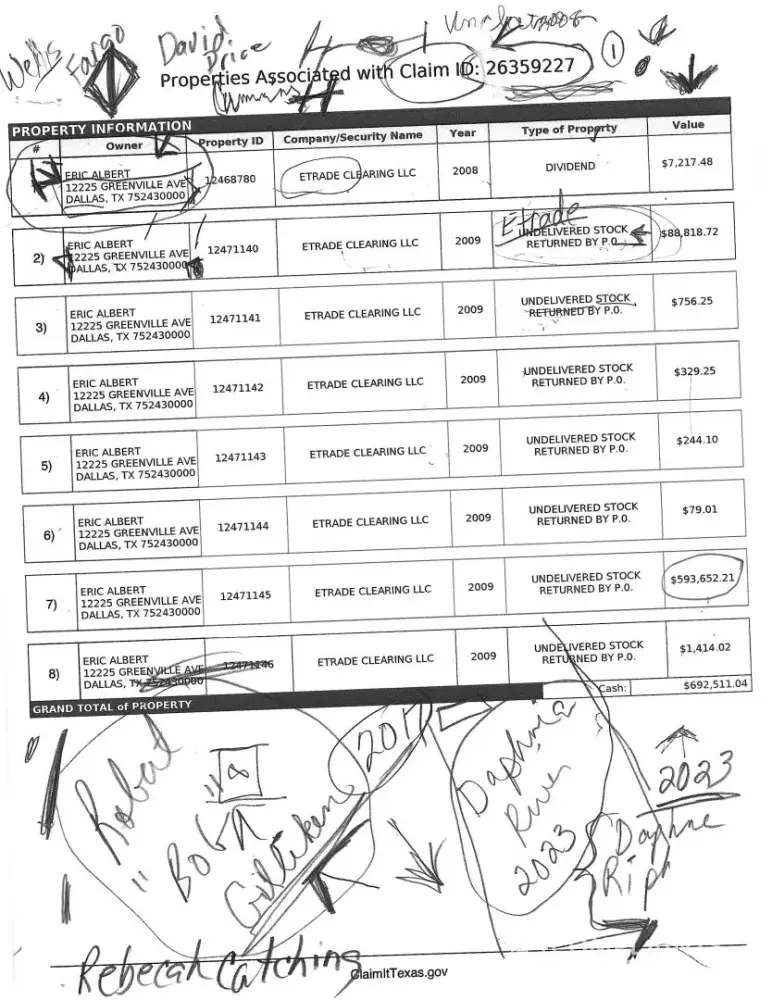 Wells
Fargo
David
Price
Properties Associated with Claim ID: 26359227
1
PROPERTY INFORMATION
# Owner Property ID Company/Security Name Year Type of Property Value
ERIC ALBERT
12225 GREENVILLE AVE
DALLAS, TX 752430000
12468780 ETRADE CLEARING LLC 2008 DIVIDEND $7,217.48
Etrade
2) ERIC ALBERT
12225 GREENVILLE AVE
DALLAS, TX 752430000
12471140 ETRADE CLEARING LLC 2009 UNDELIVERED STOCK
RETURNED BY P.O. $88,818.72
3) ERIC ALBERT
12225 GREENVILLE AVE
DALLAS, TX 752430000
12471141 ETRADE CLEARING LLC 2009 UNDELIVERED STOCK
RETURNED BY P.O. $756.25
4) ERIC ALBERT
12225 GREENVILLE AVE
DALLAS, TX 752430000
12471142 ETRADE CLEARING LLC 2009 UNDELIVERED STOCK
RETURNED BY P.O. $329.25
5) ERIC ALBERT
12225 GREENVILLE AVE
DALLAS, TX 752430000
12471143 ETRADE CLEARING LLC 2009 UNDELIVERED STOCK
RETURNED BY P.O. $244.10
6) ERIC ALBERT
12225 GREENVILLE AVE
DALLAS, TX 752430000
12471144 ETRADE CLEARING LLC 2009 UNDELIVERED STOCK
RETURNED BY P.O. $79.01
7) ERIC ALBERT
12225 GREENVILLE AVE
DALLAS, TX 752430000
12471145 ETRADE CLEARING LLC 2009 UNDELIVERED STOCK
RETURNED BY P.O. $593,652.21
8) ERIC ALBERT
12225 GREENVILLE AVE
DALLAS, TX 752430000
12471146 ETRADE CLEARING LLC 2009 UNDELIVERED STOCK
RETURNED BY P.O. $1,414.02
GRAND TOTAL of PROPERTY Cash: $692,511.04
Robert
8
201
Daphne
River
2023
2023
Daphne
Rebecah Catching
ClaimItTexas.gov